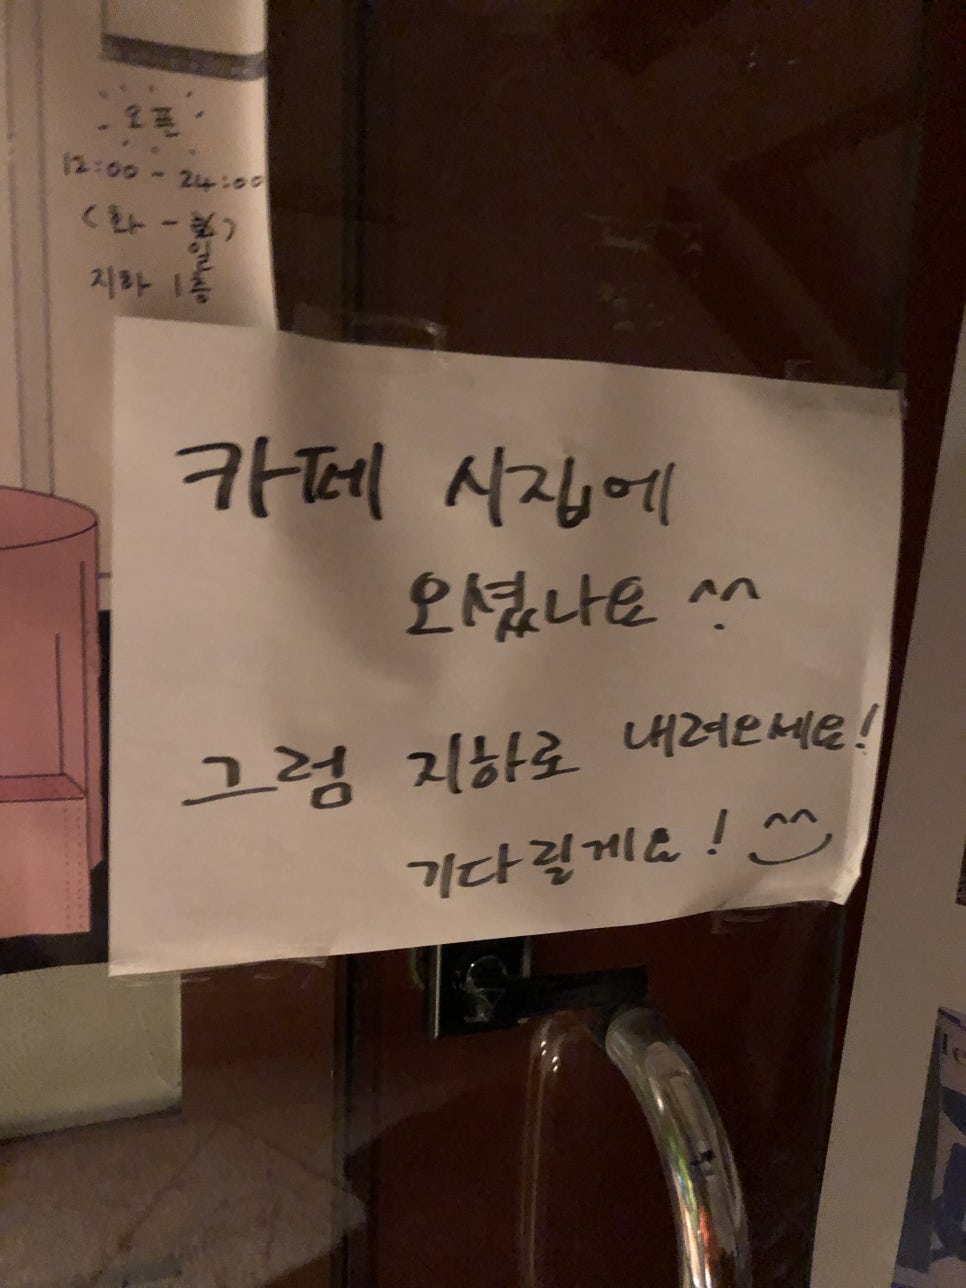 오픈
12:00 - 24:00
(화 -
지하 1층
카페 시집에
오셨나요 ^.^
그럼 지하로 내려오세요!
기다릴게요! ^^